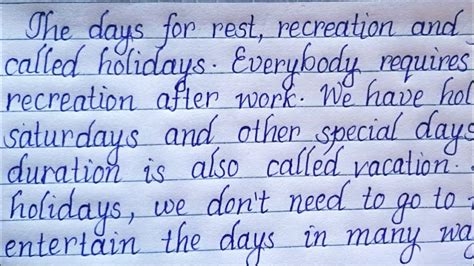 The days for rest, recreation and
called holidays. Everybody requires
recreation after work. We have hol
saturdays and other special days
duration is also called vacation.
holidays, we don't need to go to
entertain the days in many wa